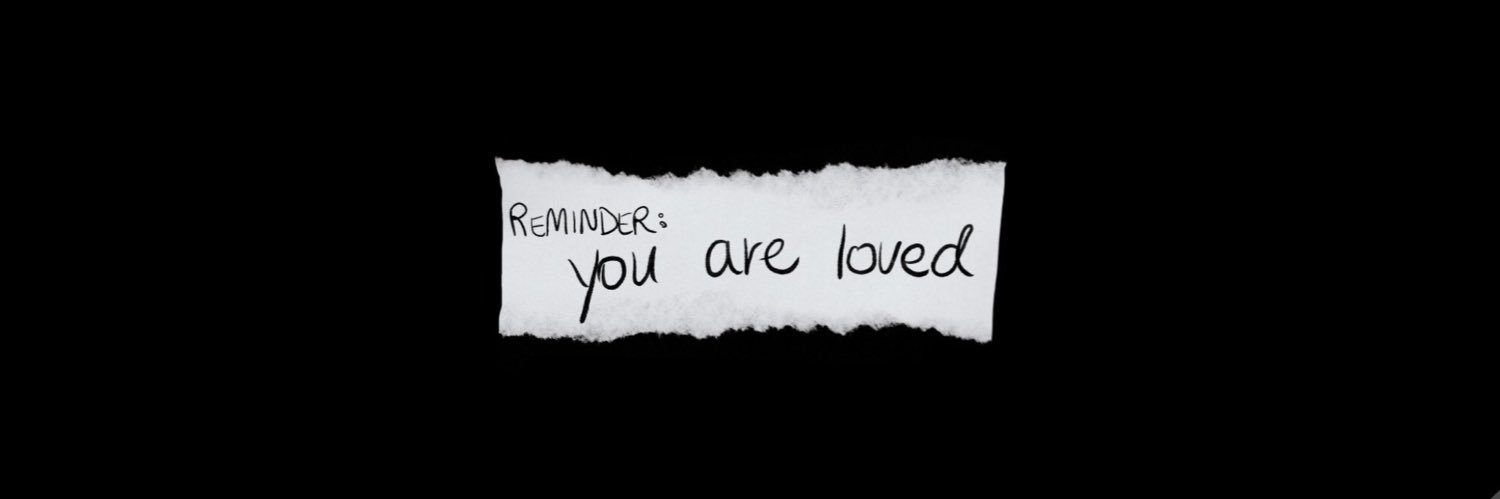 REMINDER:
you are loved